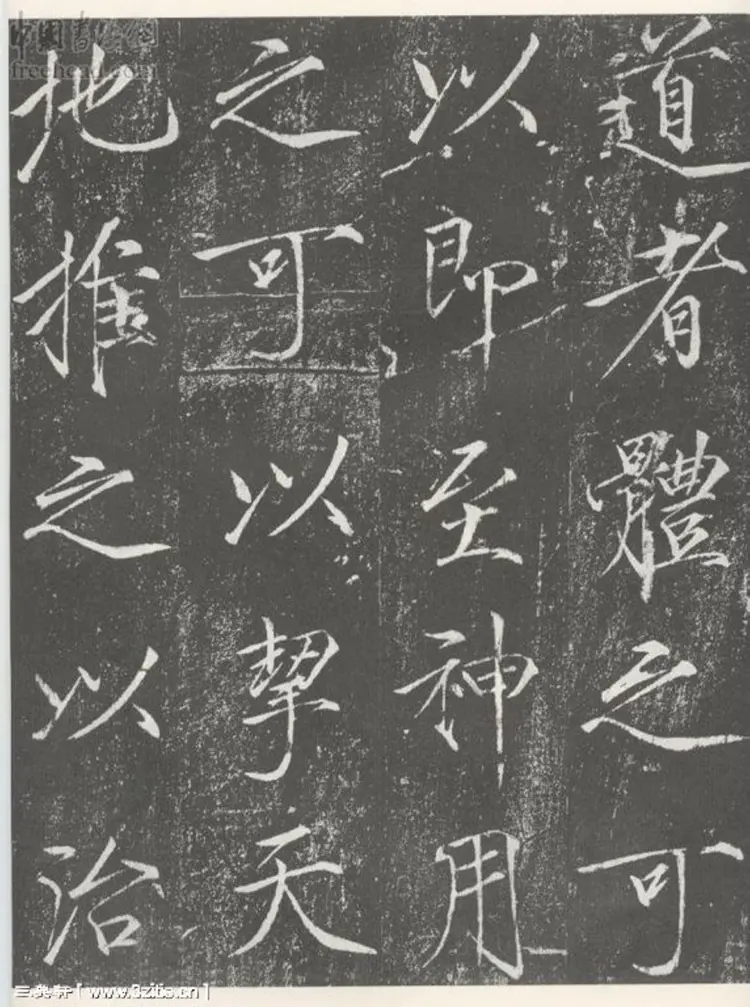 道者體之可
以即至神用
之可以挈天
地推之以治
freehead.com
三癸轩[www.3zitie.cn]